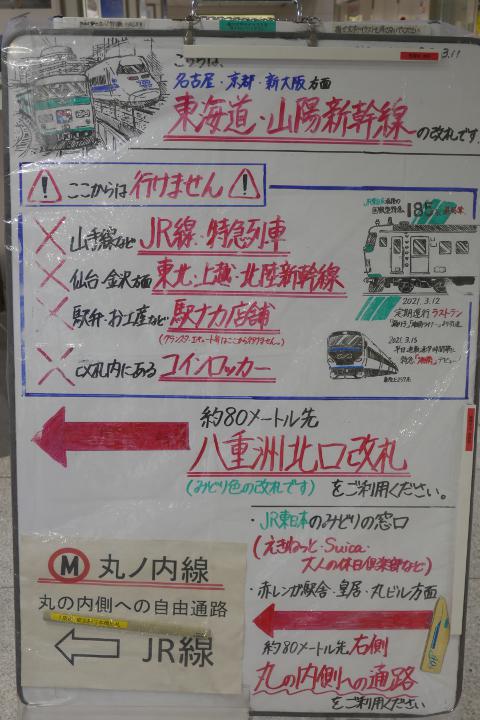 ここは、
名古屋・京都・新大阪方面
東海道・山陽新幹線の改札です。
3.11
ここからは行けません
山手線など JR線・特急列車
仙台・金沢方面 東北・上越・北陸新幹線
駅弁・お土産など 駅ナカ店舗
改札内にある コインロッカー
185
2021.3.12
定期運行ラストラン
2021.3.15
約80メートル先
八重洲北口改札
(みどり色の改札です)をご利用ください。
・JR東日本のみどりの窓口
(えきねっと・Suica・
大人の休日倶楽部など)
・赤レンガ駅舎・皇居・丸ビル方面
約80メートル先右側
丸の内側への通路
をご利用ください
M 丸ノ内線
丸の内側への自由通路
JR線